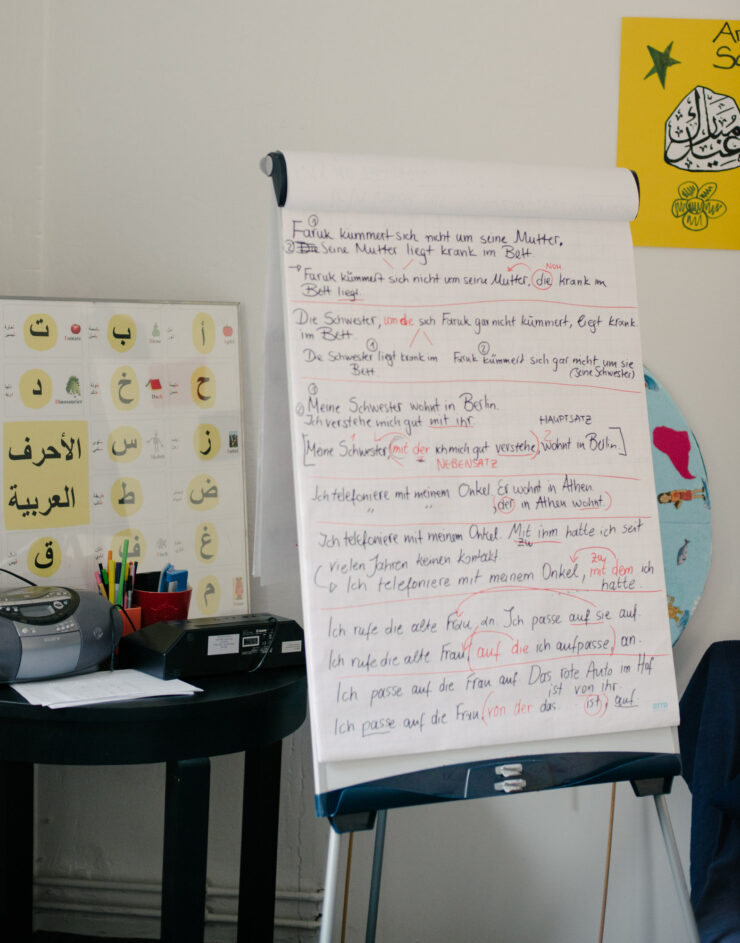 ① Faruk kümmert sich nicht um seine Mutter.
② Seine Mutter liegt krank im Bett
→ Faruk kümmert sich nicht um seine Mutter, die krank im
Bett liegt.
Nom
Die Schwester, um die sich Faruk gar nicht kümmert, liegt krank
im Bett
① Die Schwester liegt krank im
Bett
② Faruk kümmert sich gar nicht um sie
(seine Schwester)
① Meine Schwester wohnt in Berlin.
② Ich verstehe mich gut mit ihr.
HAUPTSATZ
[Meine Schwester, (mit der ich mich gut verstehe), wohnt in Berlin]
NEBENSATZ
Ich telefoniere mit meinem Onkel. Er wohnt in Athen.
" " , der in Athen wohnt.
Ich telefoniere mit meinem Onkel. Mit ihm hatte ich seit
zu
vielen Jahren keinen Kontakt
zu
Ich telefoniere mit meinem Onkel, mit dem ich
hatte.
Ich rufe die alte Frau an. Ich passe auf sie auf.
Ich rufe die alte Frau, auf die ich aufpasse, an.
Ich passe auf die Frau auf. Das rote Auto im Hof
ist von ihr.
Ich passe auf die Frau, von der das ... ist, auf.
الأحرف
العربية
أ
ب
ت
ح
خ
د
ز
س
ض
ط
غ
ف
ق
م
Tomate
Dach
Dinosaurier
Ar
Sc
عيد
مبارك